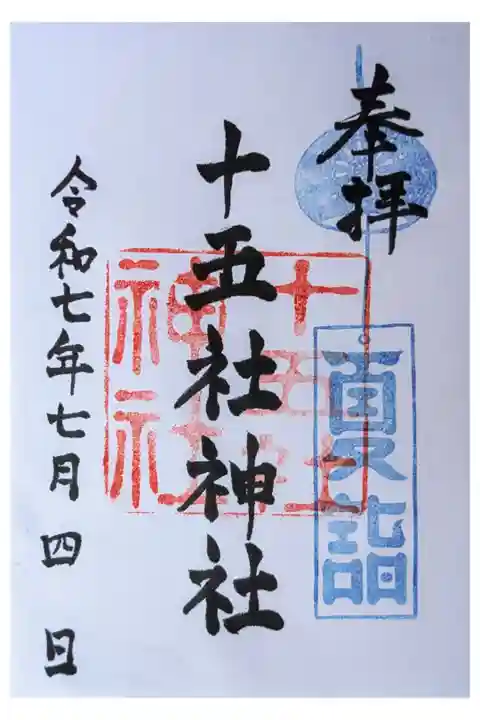 奉拝
夏詣
十五社神社
十五社
神社
令和七年七月四日